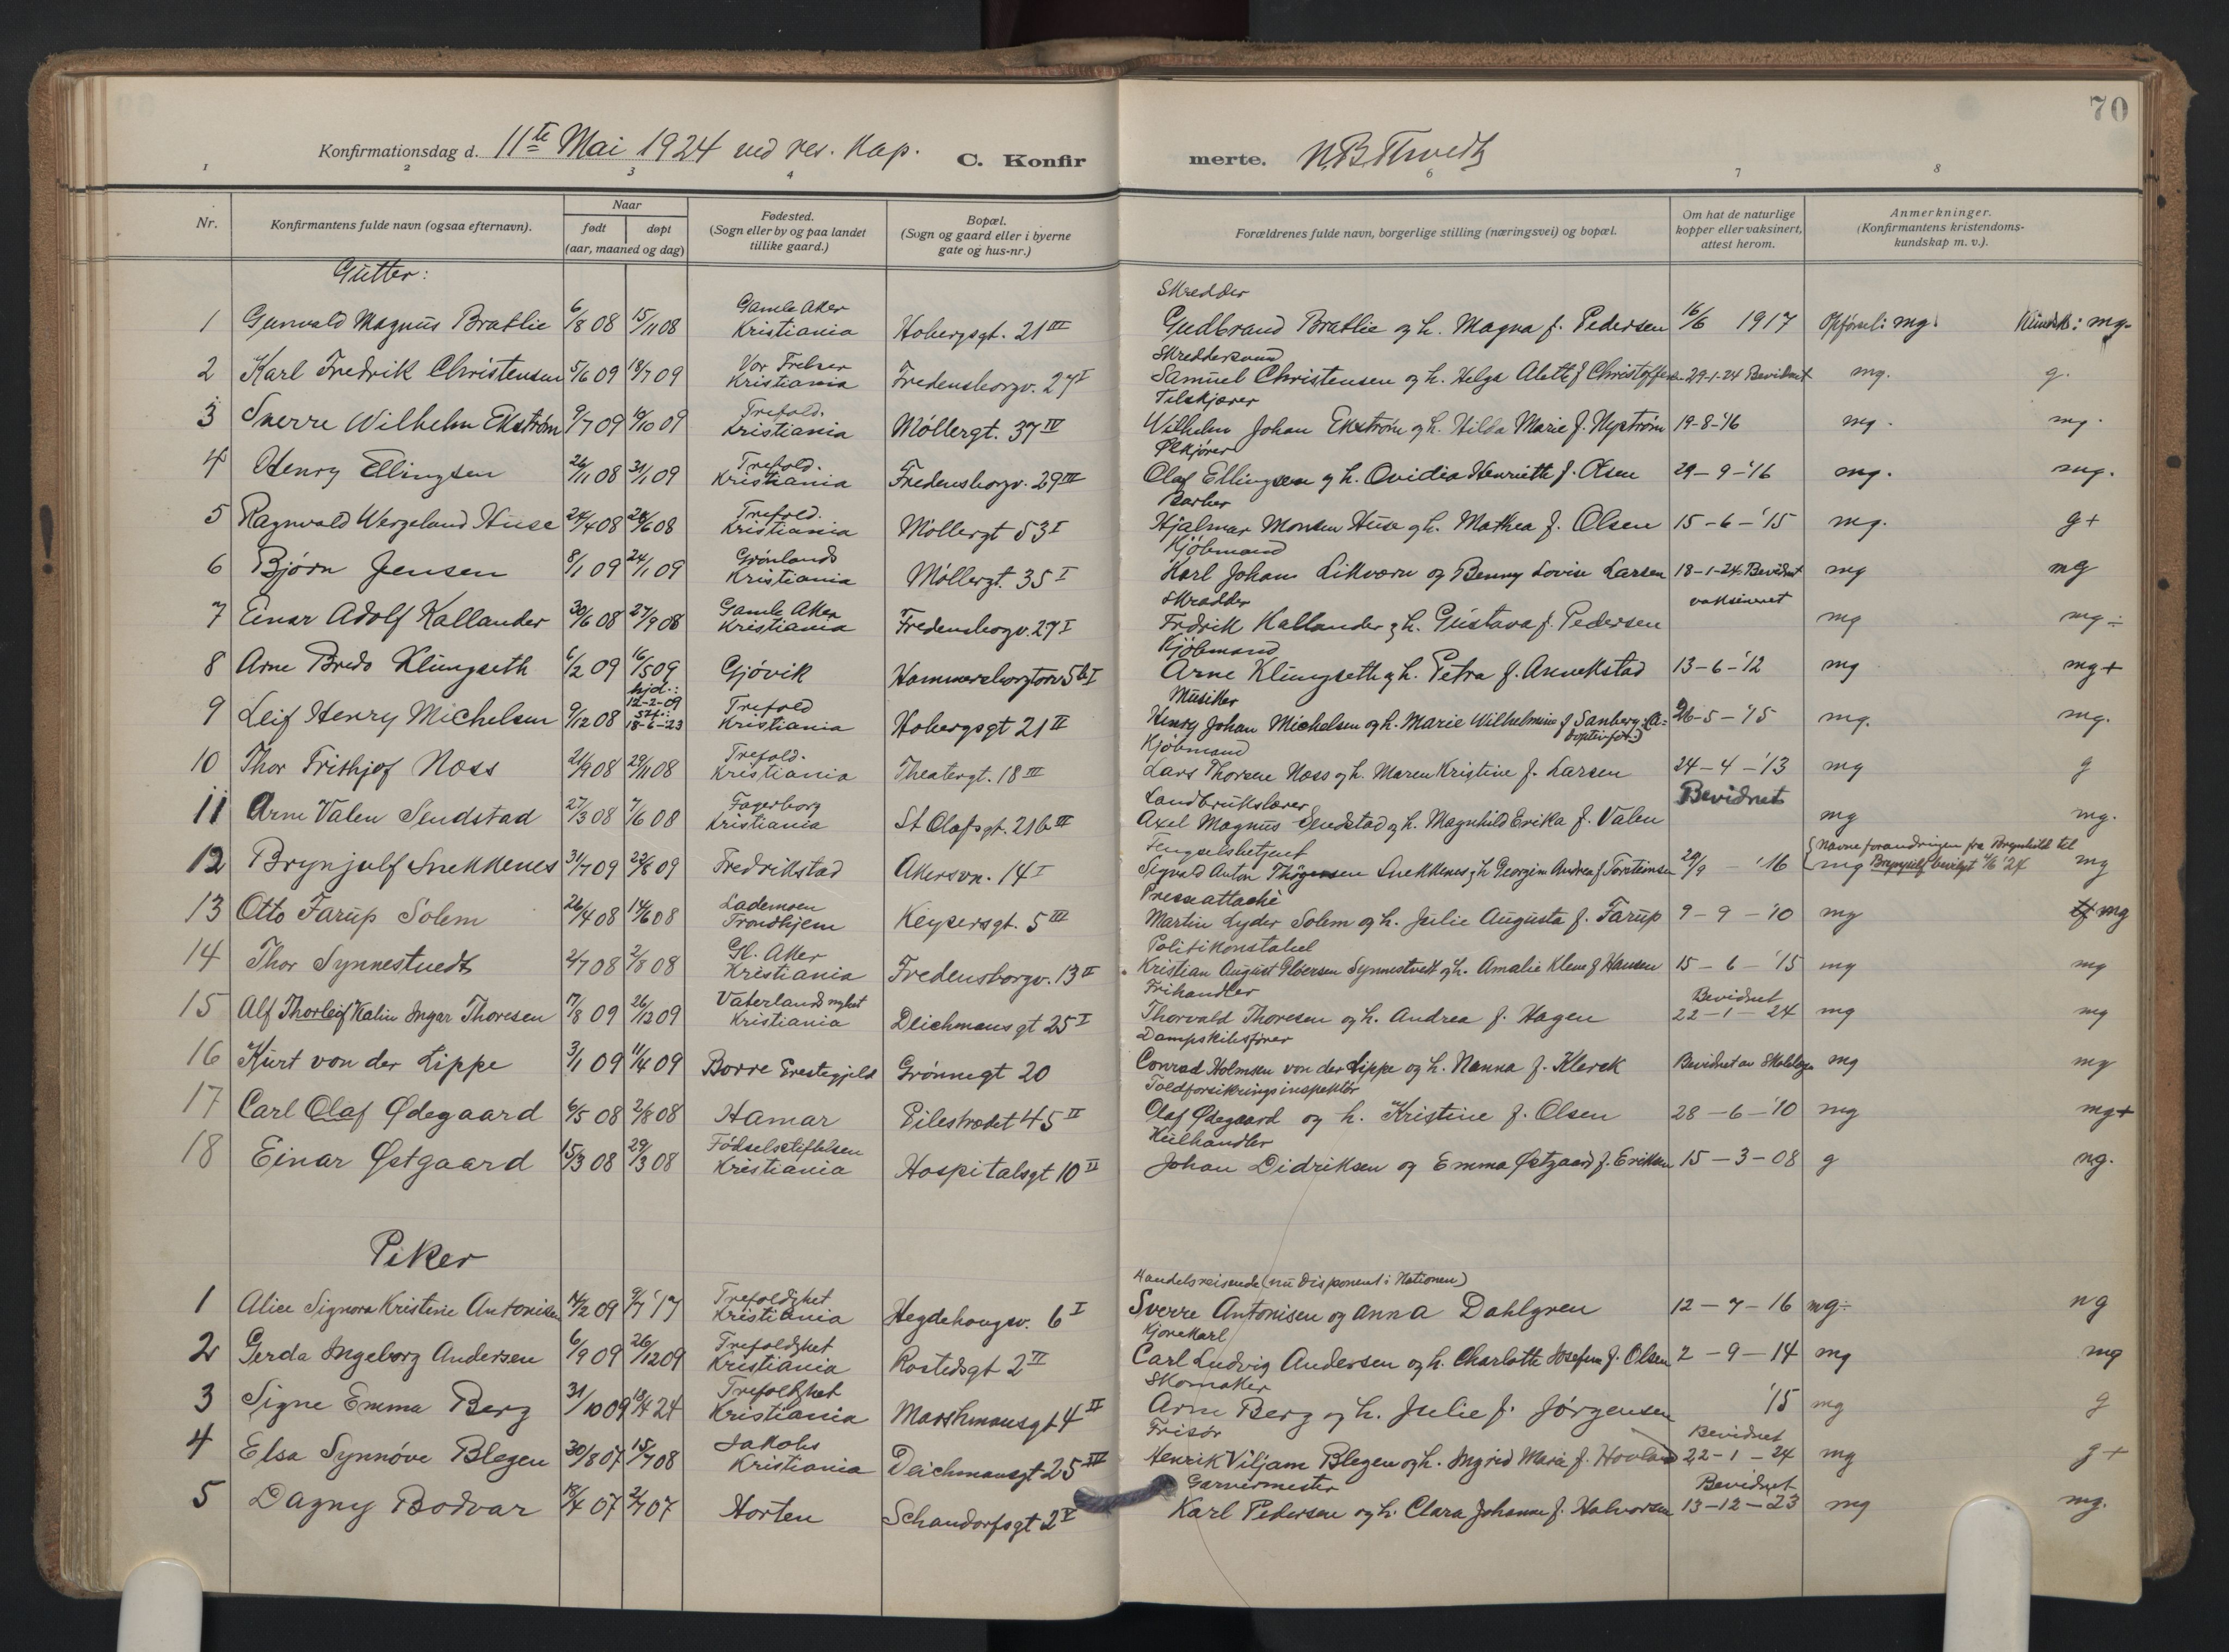 70
Konfirmationsdag d. 11te Mai 1924 ved res. Kap. C. Konfir merte. N.B. Thvedt
1 2 3 4 6 7 8
Nr. Konfirmantens fulde navn (ogsaa efternavn). Naar født døpt (aar, maaned og dag) Fødested. (Sogn eller by og paa landet tillike gaard.) Bopæl. (Sogn og gaard eller i byerne gate og hus-nr.) Forældrenes fulde navn, borgerlige stilling (næringsvei) og bopæl. Om hat de naturlige kopper eller vaksinert, attest herom. Anmerkninger. (Konfirmantens kristendoms-kundskap m. v.).
Gutter:
Gamle Aker Skredder
1 Gunvald Magnus Bratlie 6/8 08 15/11 08 Kristiania Hobergsgt. 21 III Gudbrand Bratlie og h. Magna f. Pedersen 16/6 1917 Opførsel: mg. Kundsk: mg.
Vor Frelser Skreddersvend
2 Karl Fredrik Christensen 5/6 09 18/7 09 Kristiania Fredensborgv. 27 I Samuel Christensen og h. Helga Alett f Christoffersen 29-1-24 Bevidnet mg. g.
Trefold. Tilskjærer
3 Sverre Wilhelm Ekstrøm 9/7 09 10/10 09 Kristiania Møllergt. 37 IV Wilhelm Johan Ekstrøm og h. Hilda Marie f. Nystrøm 19-8-'16 mg. mg.
Trefold. Ølkjører
4 Henry Ellingsen 26/11 08 31/1 09 Kristiania Fredensborgv. 29 III Olaf Ellingsen og h. Ovidia Henriette f. Olsen 29-9-'16 mg. mg.
Trefold. Barber
5 Ragnvald Wergeland Huse 24/4 08 28/6 08 Kristiania Møllergt 53 I Hjalmar Monsen Huse og h. Mathea f. Olsen 15-6-'15 mg. g+
Grønlands Kjøbmand
6 Bjørn Jensen 8/1 09 24/1 09 Kristiania Møllergt. 35 I Karl Johan Likværn og Benny Lovise Larsen 18-1-24 Bevidnet mg mg
Gamle Aker Skradder vaksineret
7 Einar Adolf Kallander 30/6 08 27/9 08 Kristiania Fredensborgv. 27 I Fredrik Kallander og h. Gustava f. Pedersen mg mg÷
Kjøbmand
8 Arne Bredo Klungseth 6/2 09 16/5 09 Gjøvik Hammersborgtorv 5b I Arne Klungseth og h. Petra f. Annekstad 13-6-'12 mg mg+
hjd.: 12-2-09 Trefold Musiker
9 Leif Henry Michelsen 9/12 08 18-6-23 Kristiania Hobergsgt 21 II Henry Johan Michelsen og h. Marie Wilhelmine f Sanberg (Adoptivfor.) 26-5-'15 mg. mg.
Trefold. Kjøbmand
10 Thor Frithjof Næss 21/9 08 29/11 08 Kristiania Theatergt. 18 III Lars Thorsen Næss og h. Maren Kristine f. Larsen 24-4-'13 mg g
Fagerborg Landbrukslærer Bevidnet
11 Arne Valen Sendstad 27/3 08 7/6 08 Kristiania St Olafsgt. 21b III Axel Magnus Sendstad og h. Magnhild Erika f. Valen mg mg.
Fengselsbetjent Navneforandringen fra Brynhild til
12 Brynjulf Snekkenes 31/7 09 22/8 09 Fredrikstad Akersvn. 14 I Sigvald Anton Thøgersen Snekkenes og h Georgine Andrea f Torsteinsen 29/9 - '16 mg Brynjulf bevilget 4/6 '24 mg
Lademoen Presseattaché
13 Otto Farup Solem 26/4 08 14/6 08 Trondhjem Keysersgt. 5 III Martin Lyder Solem og h. Julie Augusta f. Farup 9-9-'10 mg mg
Gl. Aker Politikonstabel
14 Thor Synnestvedt 2/7 08 2/8 08 Kristiania Fredensborgv. 13 II Kristian August Gløersen Synnestvedt og h. Amalie Klene f Hansen 15-6-'15 mg mg
Vaterlands Frihandler Bevidnet
15 Alf Thorleif Kalin Ingar Thoresen 17/8 09 26/12 09 Kristiania Deichmansgt 25 I Thorvald Thoresen og h. Andrea f. Hagen 22-1-24 mg mg
Dampskibsfører
16 Kurt von der Lippe 3/1 09 11/4 09 Borre Prestegjeld Grønnegt 20 Conrad Holmsen von der Lippe og h. Nanna f. Klerck Bevidnet av Skolelege mg mg
Toldforsikringsinspektør
17 Carl Olaf Ødegaard 6/5 08 2/8 08 Hamar Pilestrædet 45 II Olaf Ødegaard og h. Kristine f. Olsen 28-6-'10 mg mg+
Fødselsstiftelsen Kulhandler
18 Einar Østgaard 15/3 08 29/3 08 Kristiania Hospitalsgt 10 II Johan Didriksen og Emma Østgaard f. Eriksen 15-3-08 g ng.
Piker
Trefoldighet Handelsreisende (nu disponent i Nationen)
1 Alice Signora Kristine Antonisen 14/2 09 9/7 '17 Kristiania Hegdehaugsv. 6 I Sverre Antonisen og Anna Dahlgren 12-7-16 mg÷ ng
Trefoldighet Kjørekarl
2 Gerda Ingeborg Andersen 6/9 09 26/12 09 Kristiania Rostedsgt 2 II Carl Ludvig Andersen og h. Charlotte Josefine f. Olsen 2-9-14 mg mg
Trefoldighet Skomaker
3 Signe Emma Berg 31/10 09 13/4 24 Kristiania Marstrandsgt 4 II Arne Berg og h. Julie f. Jørgensen '15 mg g
Jakobs Frisør Bevidnet
4 Elsa Synnøve Blegen 30/8 07 15/7 08 Kristiania Deichmansgt 25 IV Henrik Viljam Blegen og h. Ingrid Marie f. Hovland 22-1-24 mg g+
Garvermester Bevidnet
5 Dagny Bodvar 18/4 07 2/7 07 Horten Schandorfsgt 2 V Karl Pedersen og h. Clara Johanne f. Halvorsen 13-12-23 mg mg.